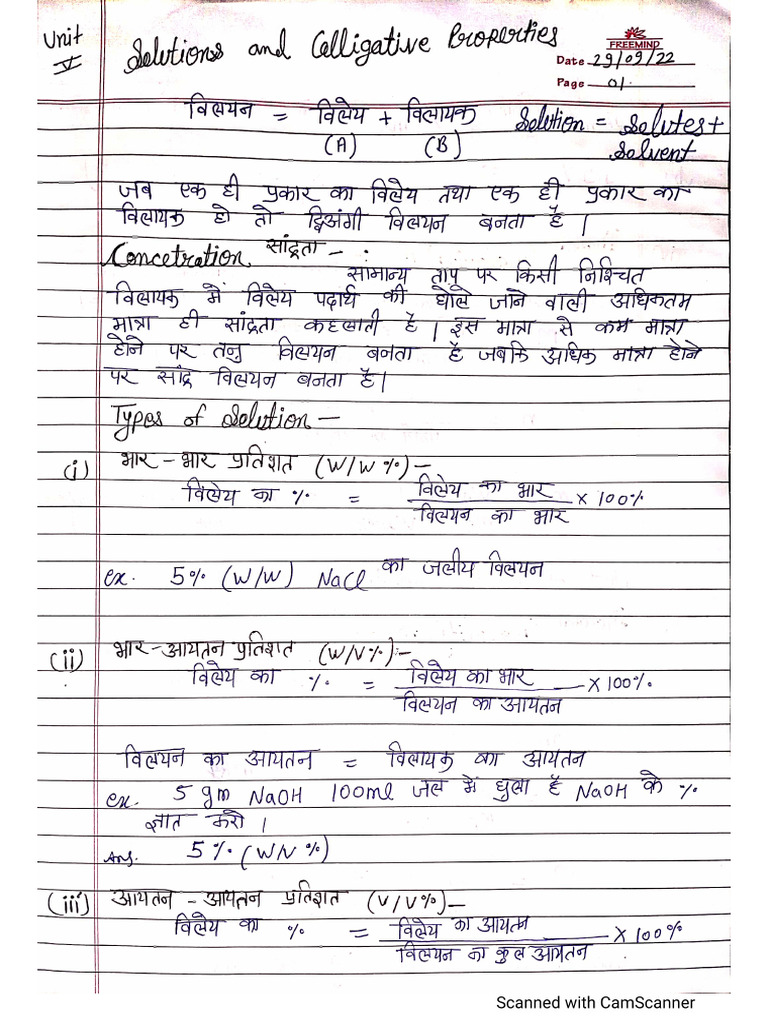 Unit V
Solutions and Colligative Properties
FREEMIND
Date 29/09/22
Page 01.
विलयन = विलेय + विलायक
(A) (B)
Solution = Solutes + Solvent
जब एक ही प्रकार का विलेय तथा एक ही प्रकार का
विलायक हो तो द्विअंगी विलयन बनता है।
Concetration सांद्रता - :
सामान्य ताप पर किसी निश्चित
विलायक में विलेय पदार्थ की घोले जाने वाली अधिकतम
मात्रा ही सांद्रता कहलाती है। इस मात्रा से कम मात्रा
होने पर तनु विलयन बनता है जबकि अधिक मात्रा होने
पर सांद्र विलयन बनता है।
Types of Solution -
(i) भार - भार प्रतिशत (W/W %) -
विलेय का % = विलेय का भार / विलयन का भार × 100%
ex. 5% (W/W) NaCl का जलीय विलयन
(ii) भार - आयतन प्रतिशत (W/V %) :-
विलेय का % = विलेय का भार / विलयन का आयतन × 100%.
विलयन का आयतन = विलायक का आयतन
ex. 5 gm NaOH 100ml जल में घुला है NaOH के %
ज्ञात करो।
Ans. 5% (W/V %)
(iii) आयतन - आयतन प्रतिशत (V/V%) -
विलेय का % = विलेय का आयतन / विलयन का कुल आयतन × 100%
Scanned with CamScanner